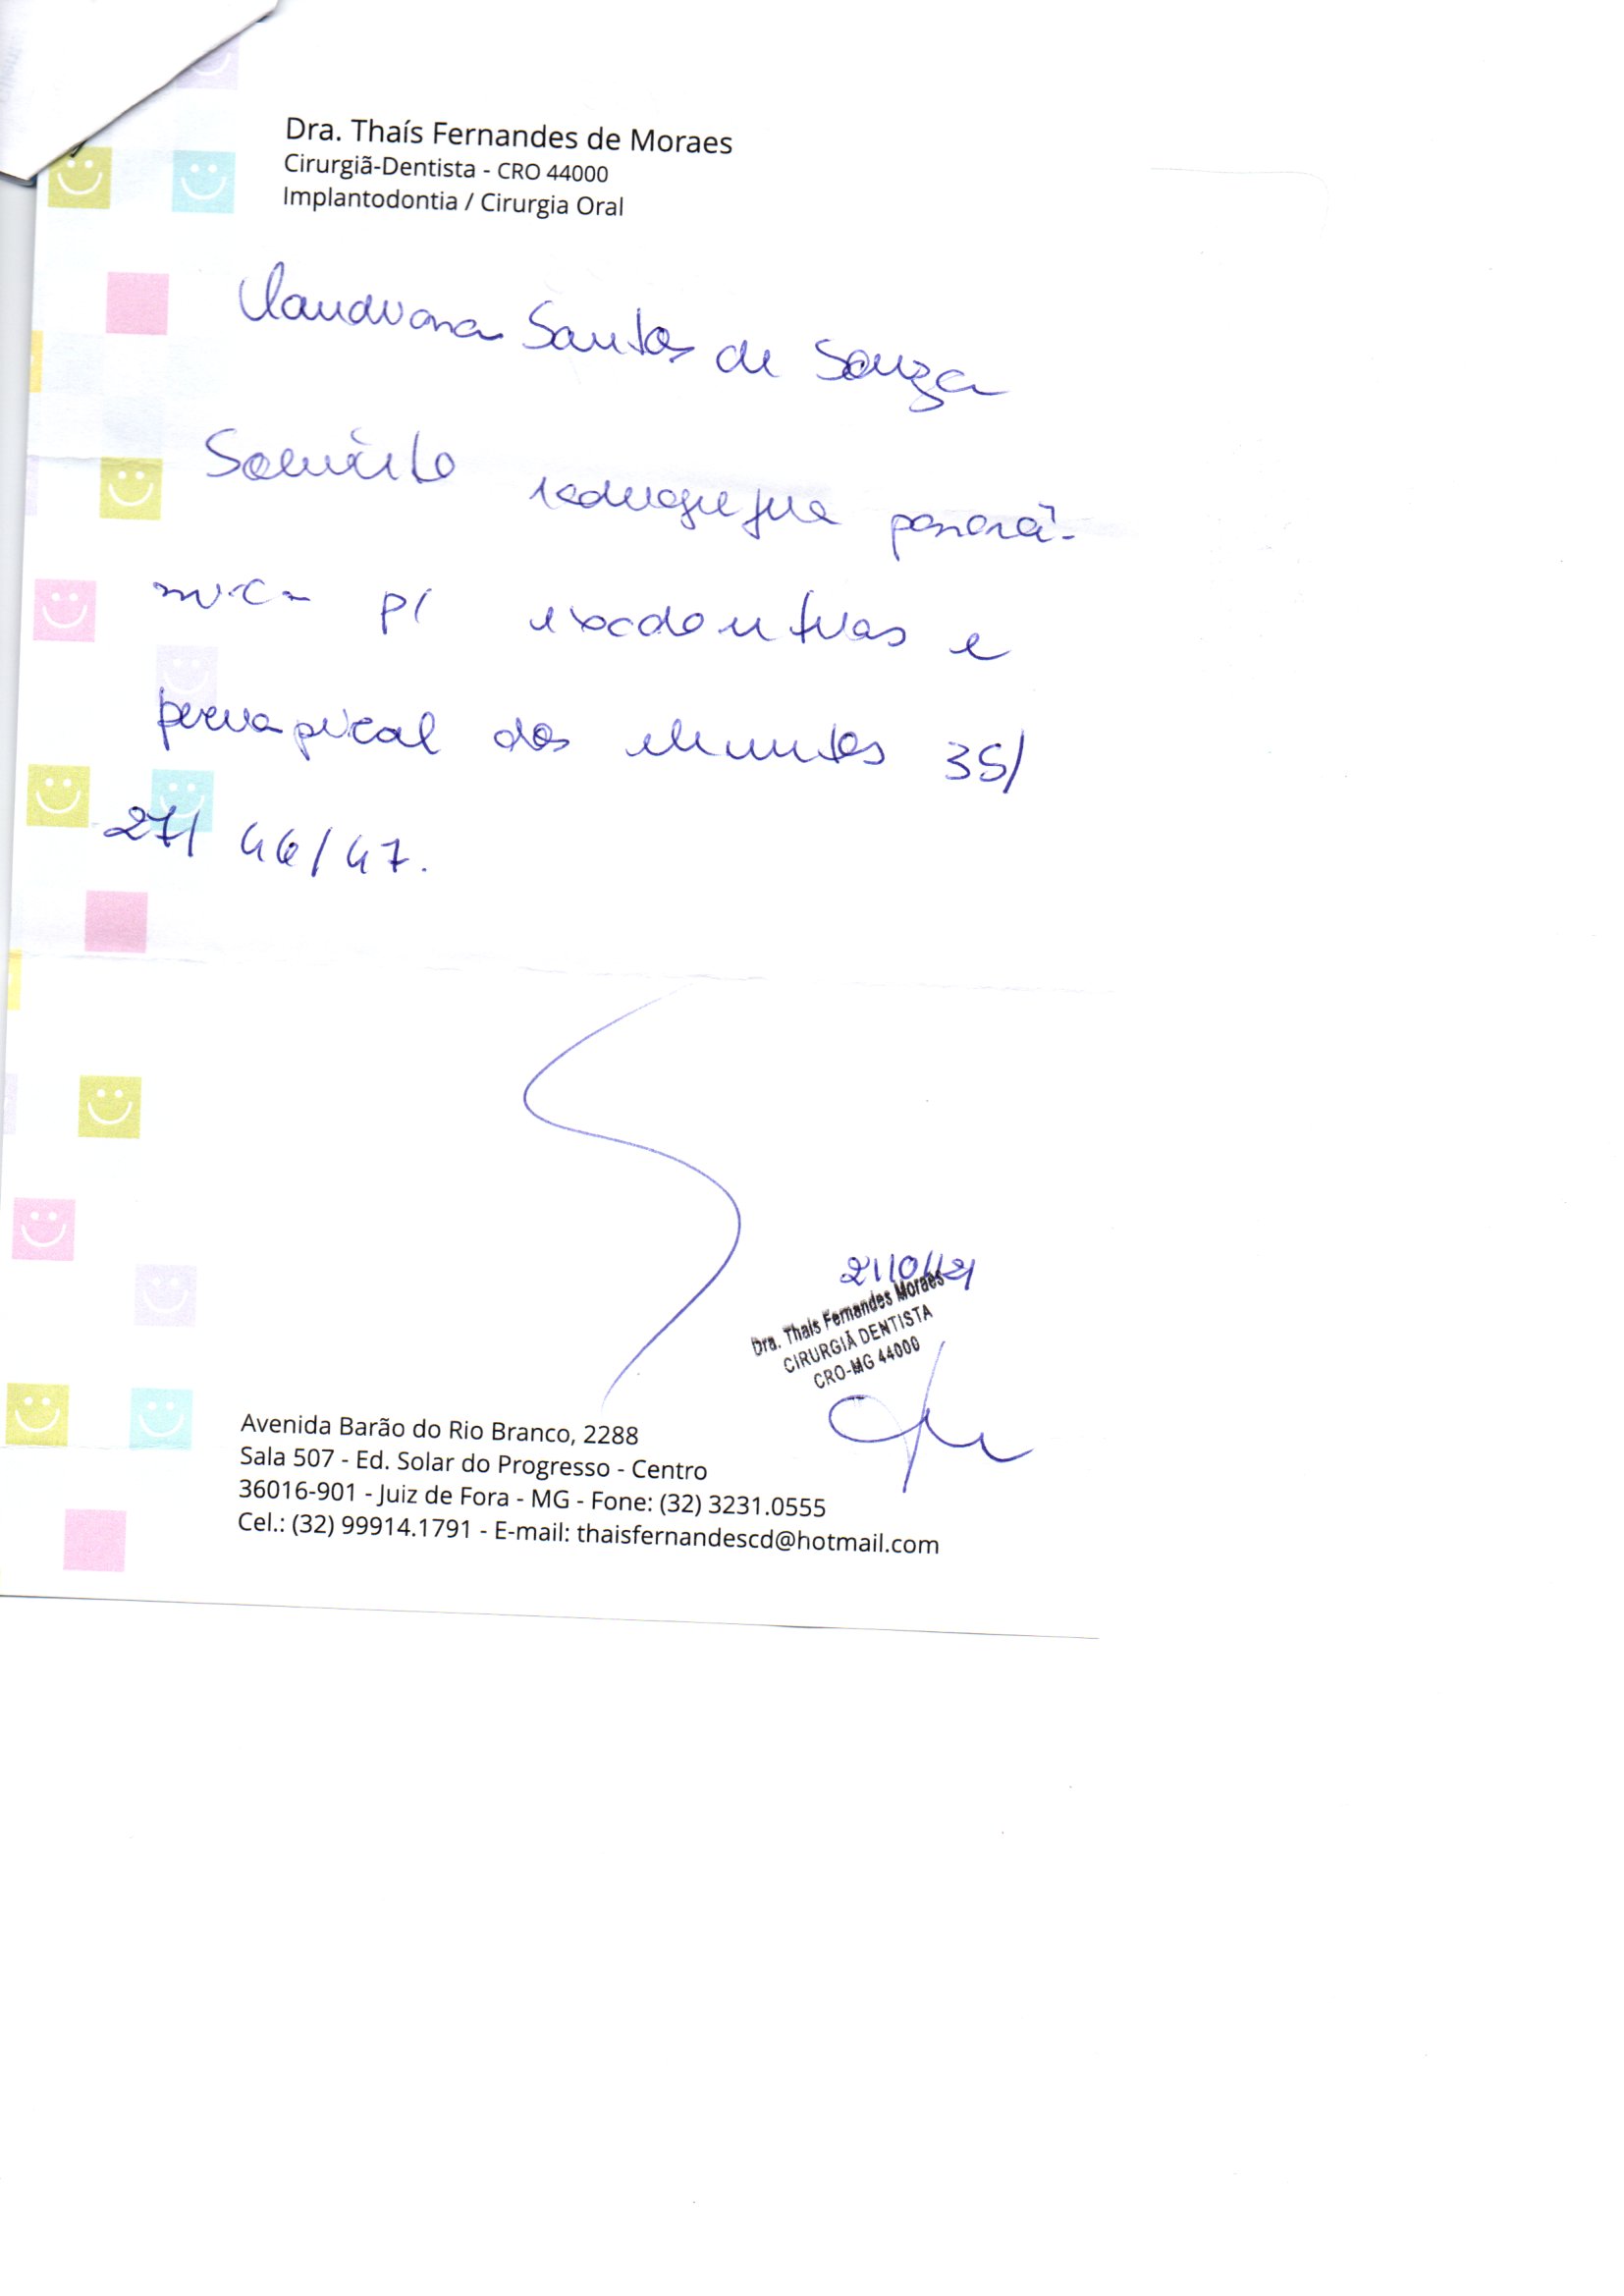 Dra. Thaís Fernandes de Moraes
Cirurgiã-Dentista - CRO 44000
Implantodontia / Cirurgia Oral
Santos de Souza
Solicito radiografia panorâ-
mica p/ exodontias e
periapical dos elementos 35/
27/ 46/47.
21/01/21
Dra. Thais Fernandes Moraes
CIRURGIÃ DENTISTA
CRO-MG 44000
Avenida Barão do Rio Branco, 2288
Sala 507 - Ed. Solar do Progresso - Centro
36016-901 - Juiz de Fora - MG - Fone: (32) 3231.0555
Cel.: (32) 99914.1791 - E-mail: thaisfernandescd@hotmail.com